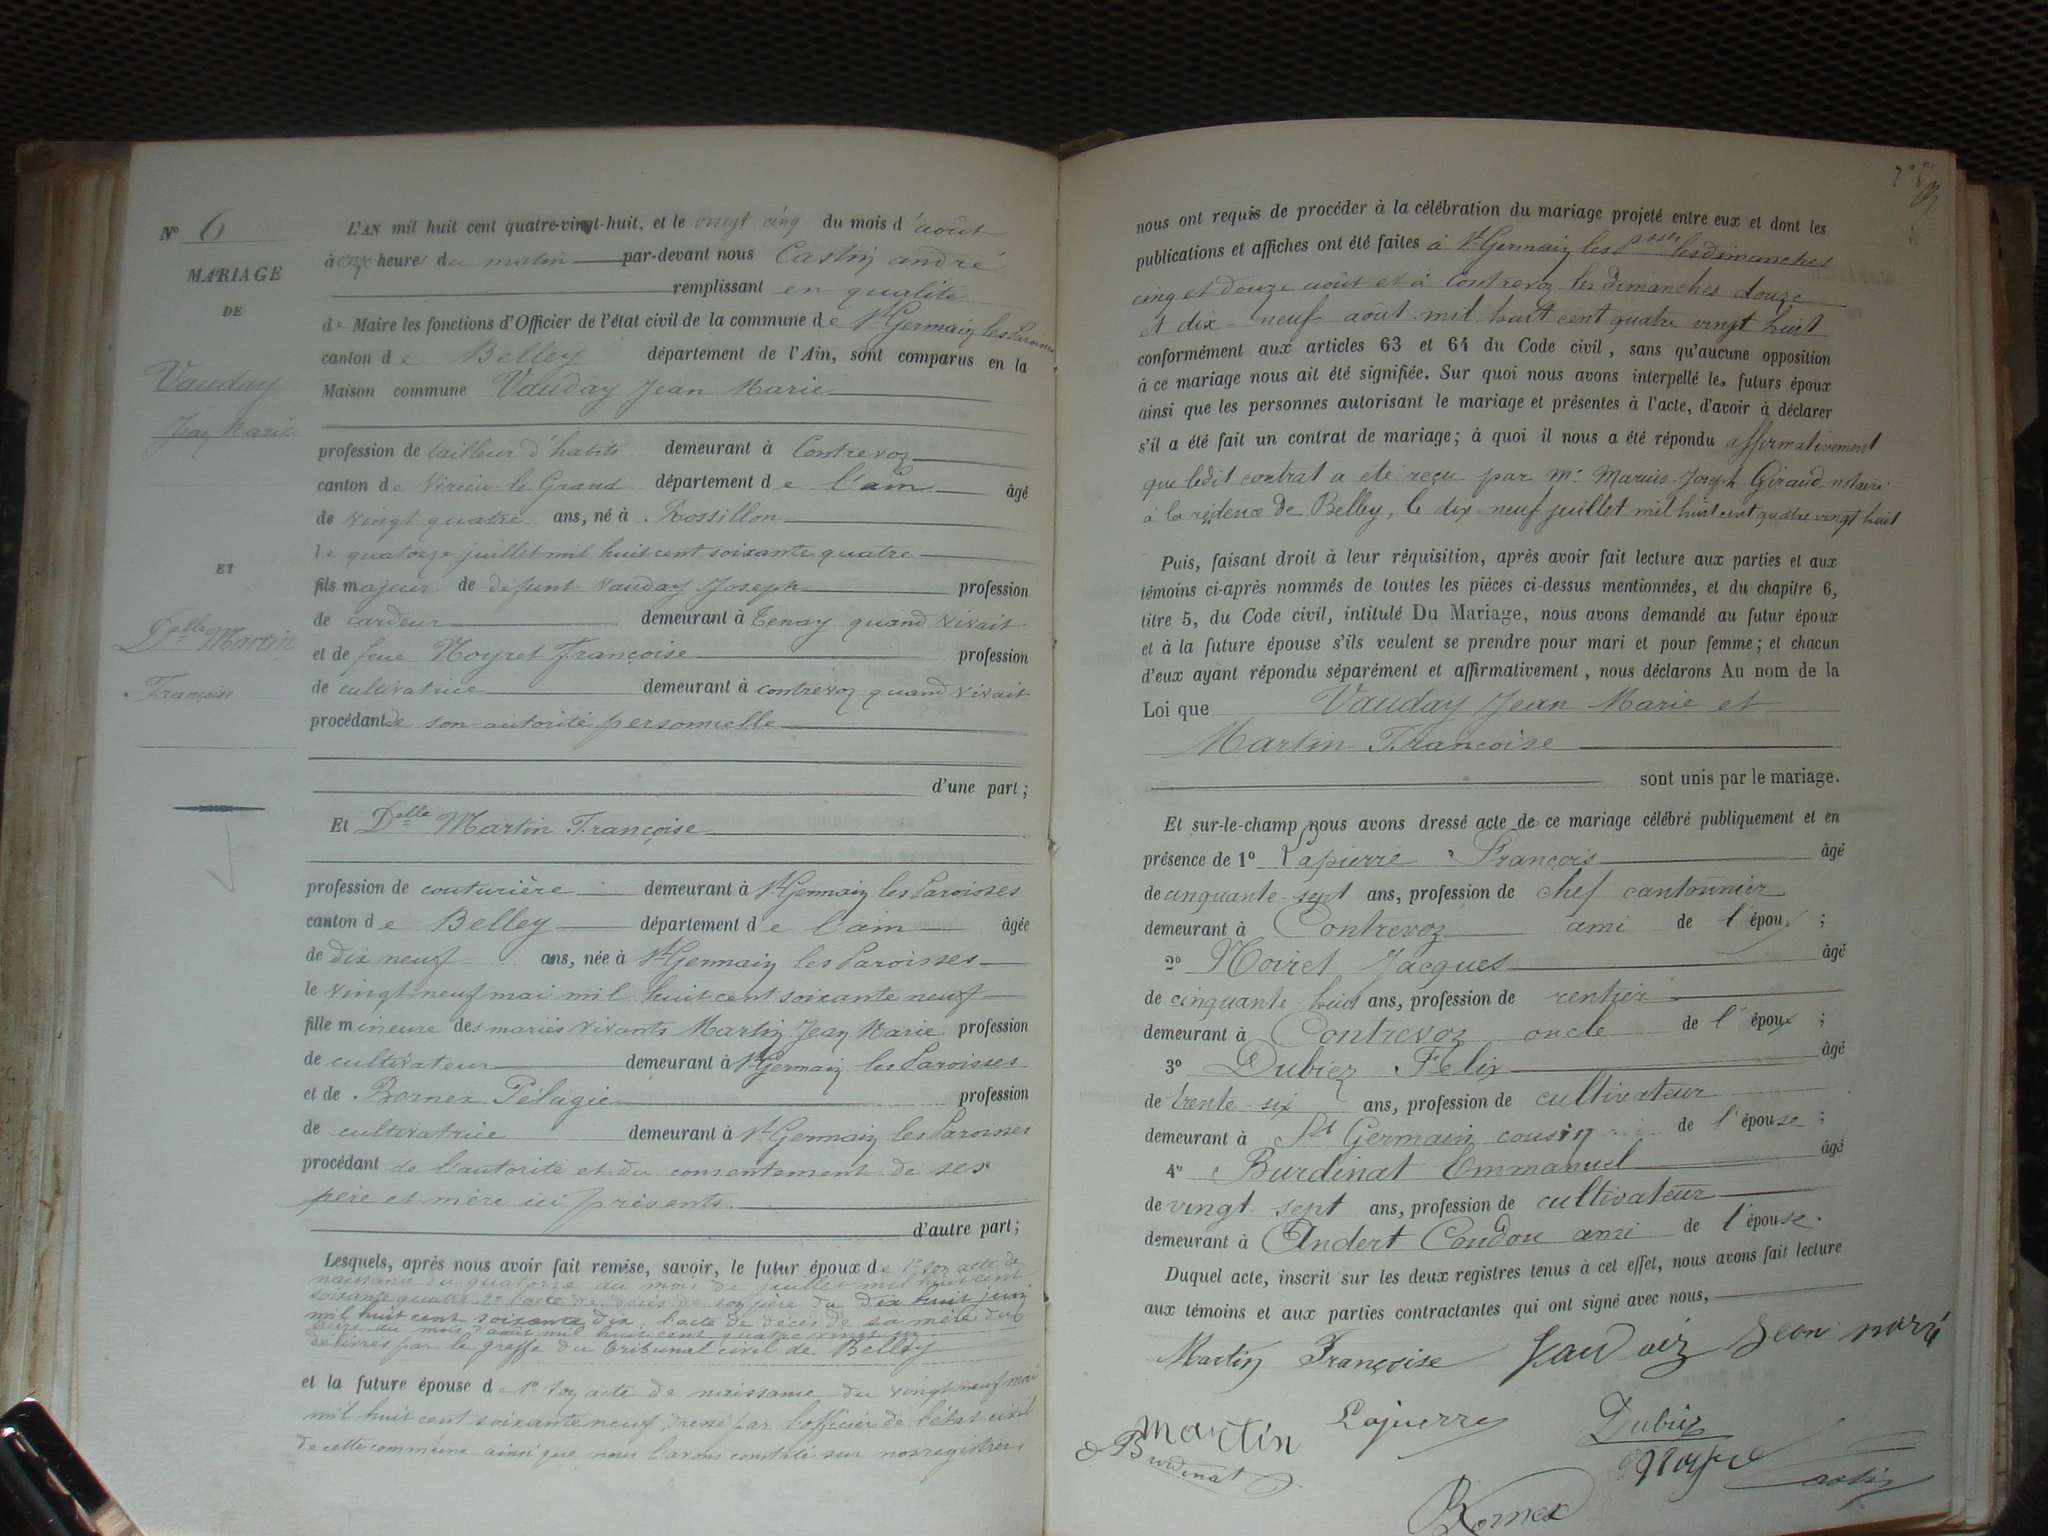 N° 6
MARIAGE
DE
Vauday
Jean Marie
ET
Delle Martin
Françoise
L'AN mil huit cent quatre-vingt-huit, et le vingt cinq du mois d'août
à onze heures du matin par-devant nous Castin andré
remplissant en qualité
de Maire les fonctions d'Officier de l'état civil de la commune de St Germain les Paroisses
canton de Belley département de l'Ain, sont comparus en la
Maison commune Vauday Jean Marie
profession de tailleur d'habits demeurant à Contrevoz
canton de Virieu le Grand département de l'ain âgé
de vingt quatre ans, né à Rossillon
le quatorze juillet mil huit cent soixante quatre
fils majeur de défunt Vauday Joseph profession
de cardeur demeurant à Tenay quand vivait
et de feue Moyret Françoise profession
de cultivatrice demeurant à contrevoz quand vivait
procédant de son autorité personnelle
d'une part ;
Et Delle Martin Françoise
profession de couturière demeurant à St Germain les Paroisses
canton de Belley département de l'ain âgée
de dix neuf ans, née à St Germain les Paroisses
le vingt neuf mai mil huit cent soixante neuf
fille mineure des mariés vivants Martin Jean Marie profession
de cultivateur demeurant à St Germain les Paroisses
et de Bornex Pélagie profession
de cultivatrice demeurant à St Germain les Paroisses
procédant de l'autorité et du consentement de ses
père et mère ici présents.
d'autre part ;
Lesquels, après nous avoir fait remise, savoir, le futur époux de 1° son acte de
naissance du quatorze du mois de juillet mil huit cent
soixante quatre 2° l'acte de décès de son père du dix huit juin
mil huit cent soixante dix, l'acte de décès de sa mère du
du mois d'août mil huit cent quatre vingt
délivrés par le greffe du tribunal civil de Belley
et la future épouse de 1° son acte de naissance du vingt neuf mai
mil huit cent soixante neuf dressé par l'officier de l'état civil
de cette commune ainsi que nous l'avons constaté sur nos registres
nous ont requis de procéder à la célébration du mariage projeté entre eux et dont les
publications et affiches ont été faites à St Germain les Psses les dimanches
cinq et douze août et à Contrevoz les dimanches douze
et dix-neuf août mil huit cent quatre vingt huit
conformément aux articles 63 et 64 du Code civil, sans qu'aucune opposition
à ce mariage nous ait été signifiée. Sur quoi nous avons interpellé les futurs époux
ainsi que les personnes autorisant le mariage et présentes à l'acte, d'avoir à déclarer
s'il a été fait un contrat de mariage ; à quoi il nous a été répondu affirmativement
que ledit contrat a été reçu par Me Marius Joseph Giraud notaire
à la résidence de Belley, le dix neuf juillet mil huit cent quatre vingt huit
Puis, faisant droit à leur réquisition, après avoir fait lecture aux parties et aux
témoins ci-après nommés de toutes les pièces ci-dessus mentionnées, et du chapitre 6,
titre 5, du Code civil, intitulé Du Mariage, nous avons demandé au futur époux
et à la future épouse s'ils veulent se prendre pour mari et pour femme ; et chacun
d'eux ayant répondu séparément et affirmativement, nous déclarons Au nom de la
Loi que Vauday Jean Marie et
Martin Françoise
sont unis par le mariage.
Et sur-le-champ nous avons dressé acte de ce mariage célébré publiquement et en
présence de 1° Lapierre François âgé
de cinquante sept ans, profession de chef cantonnier
demeurant à Contrevoz ami de l'époux ;
2° Moiret Jacques âgé
de cinquante huit ans, profession de rentier
demeurant à Contrevoz oncle de l'époux ;
3° Dubiez Felix âgé
de trente six ans, profession de cultivateur
demeurant à St Germain cousin de l'épouse ;
4° Burdinat Emmanuel âgé
de vingt sept ans, profession de cultivateur
demeurant à Andert Condon ami de l'épouse.
Duquel acte, inscrit sur les deux registres tenus à cet effet, nous avons fait lecture
aux témoins et aux parties contractantes qui ont signé avec nous,
Martin Françoise
martin Lapierre Dubiez
Burdinat
Bornex Castin